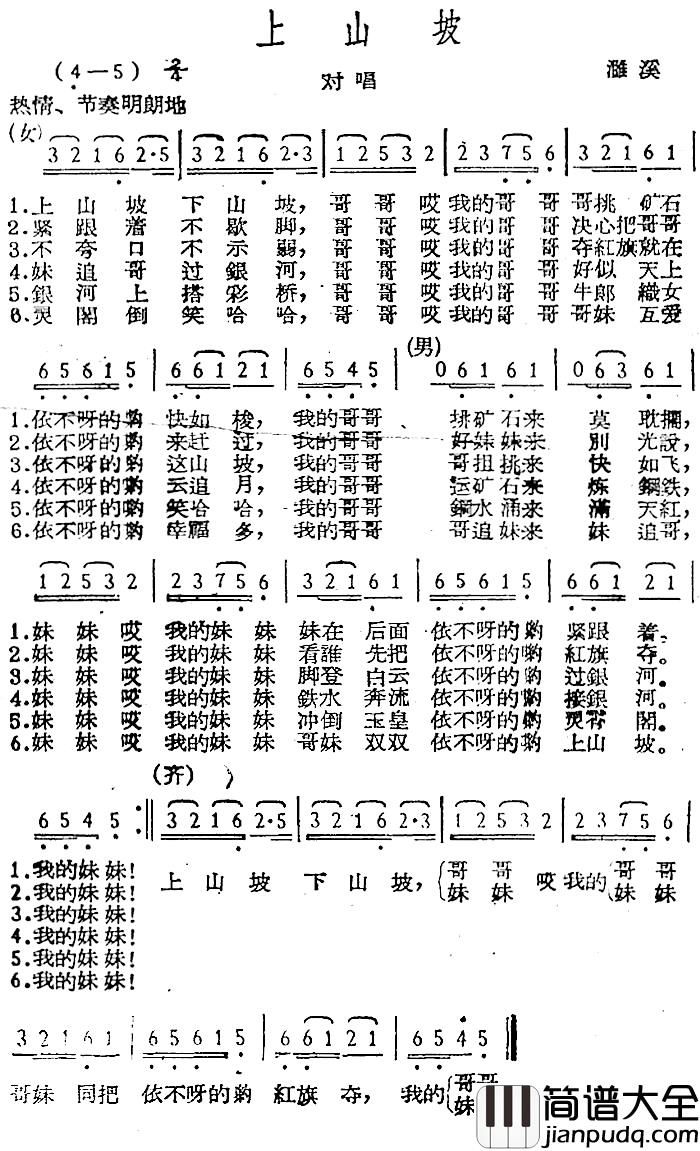 上山坡
(4—5) 2/4 对唱 濉溪
热情、节奏明朗地
(女)
3 2 1 6 2·5 | 3 2 1 6 2·3 | 1 2 5 3 2 | 2 3 7 5 6 | 3 2 1 6 1 |
1.上山坡下山坡，哥哥哎我的哥哥哥挑矿石
2.紧跟着不歇脚，哥哥哎我的哥哥决心把哥哥
3.不夸口不示弱，哥哥哎我的哥哥夺紅旗就在
4.妹追哥过銀河，哥哥哎我的哥哥好似天上
5.銀河上搭彩桥，哥哥哎我的哥哥牛郎織女
6.灵閣倒笑哈哈，哥哥哎我的哥哥哥妹互爱
(男)
6 5 6 1 5 | 6 6 1 2 1 | 6 5 4 5 | 0 6 1 6 1 | 0 6 3 6 1 |
1.依不呀的哟快如梭，我的哥哥 挑矿石来莫耽擱，
2.依不呀的哟来赶过，我的哥哥 好妹妹来別光說，
3.依不呀的哟这山坡，我的哥哥 哥担挑来快如飞，
4.依不呀的哟云追月，我的哥哥 运矿石来炼鋼鉄，
5.依不呀的哟笑哈哈，我的哥哥 鋼水涌来滿天紅，
6.依不呀的哟幸福多，我的哥哥 哥追妹来妹追哥，
1 2 5 3 2 | 2 3 7 5 6 | 3 2 1 6 1 | 6 5 6 1 5 | 6 6 1 2 1 |
1.妹妹哎我的妹妹妹在后面依不呀的哟紧跟着。
2.妹妹哎我的妹妹看誰先把依不呀的哟紅旗夺。
3.妹妹哎我的妹妹脚登白云依不呀的哟过銀河。
4.妹妹哎我的妹妹鉄水奔流依不呀的哟接銀河。
5.妹妹哎我的妹妹冲倒玉皇依不呀的哟灵霄閣。
6.妹妹哎我的妹妹哥妹双双依不呀的哟上山坡。
(齐)
6 5 4 5 :‖ 3 2 1 6 2·5 | 3 2 1 6 2·3 | 1 2 5 3 2 | 2 3 7 5 6 |
1.我的妹妹！
2.我的妹妹！
3.我的妹妹！
4.我的妹妹！
5.我的妹妹！
6.我的妹妹！
上山坡下山坡，{哥哥 哎我的{哥哥
妹妹 妹妹
3 2 1 6 1 | 6 5 6 1 5 | 6 6 1 2 1 | 6 5 4 5 ‖
哥妹同把依不呀的哟紅旗夺，我的{哥哥
妹
简谱大全
jianpudq.com